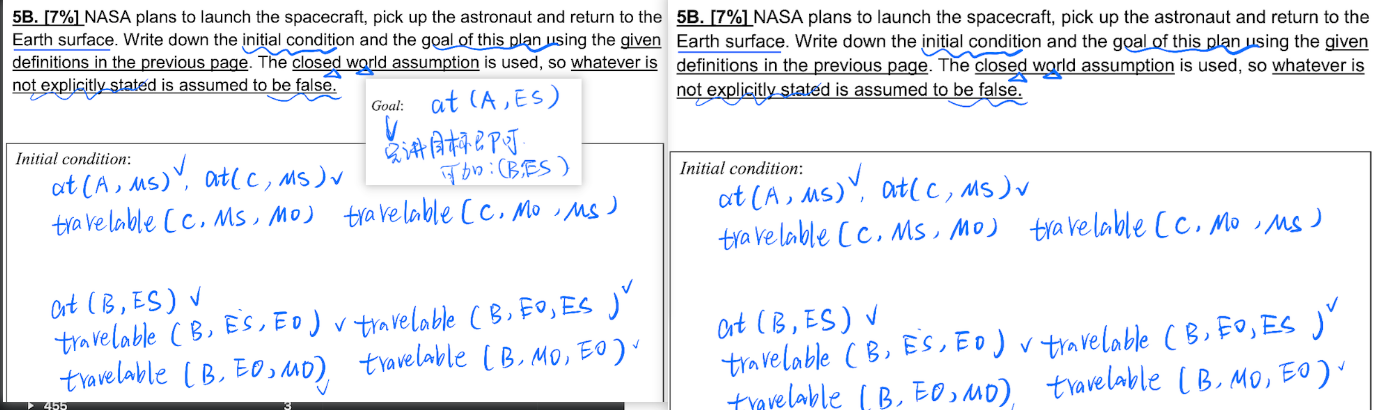 5B. [7%] NASA plans to launch the spacecraft, pick up the astronaut and return to the
Earth surface. Write down the initial condition and the goal of this plan using the given
definitions in the previous page. The closed world assumption is used, so whatever is
not explicitly stated is assumed to be false.
Goal: at (A, ES)
只讲目标即可
可加: (B,ES)
Initial condition:
at (A, MS), at(C, MS)
travelable (C, MS, MO) travelable (C, MO, MS)
at (B, ES)
travelable (B, ES, EO) travelable (B, EO, ES)
travelable (B, EO, MO) travelable (B, MO, EO)
455 3
5B. [7%] NASA plans to launch the spacecraft, pick up the astronaut and return to the
Earth surface. Write down the initial condition and the goal of this plan using the given
definitions in the previous page. The closed world assumption is used, so whatever is
not explicitly stated is assumed to be false.
Initial condition:
at (A, MS), at(C, MS)
travelable (C, MS, MO) travelable (C, MO, MS)
at (B, ES)
travelable (B, ES, EO) travelable (B, EO, ES)
travelable (B, EO, MO) travelable (B, MO, EO)